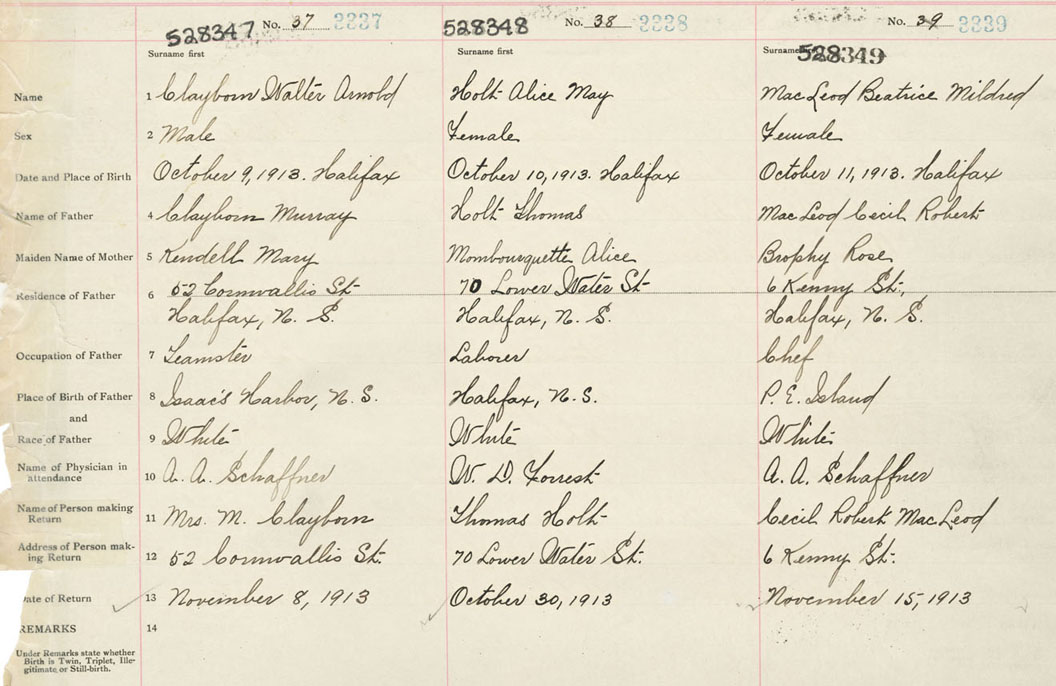 528347 No. 37 3337 528348 No. 38 3338 No. 39 3339
Surname first Surname first Surname 528349
Name 1 Clayborn Walter Arnold Holt Alice May MacLeod Beatrice Mildred
Sex 2 Male Female Female
Date and Place of Birth 3 October 9, 1913. Halifax October 10, 1913. Halifax October 11, 1913. Halifax
Name of Father 4 Clayborn Murray Holt Thomas MacLeod Cecil Robert
Maiden Name of Mother 5 Kendell Mary Mombourquette Alice Brophy Rose
Residence of Father 6 52 Cornwallis St. 70 Lower Water St. 6 Kenny St.,
Halifax, N. S. Halifax, N. S. Halifax, N. S.
Occupation of Father 7 Teamster Laborer Chef
Place of Birth of Father 8 Isaac's Harbor, N. S. Halifax, N. S. P. E. Island
and
Race of Father 9 White White White
Name of Physician in attendance 10 A. A. Schaffner W. D. Forrest A. A. Schaffner
Name of Person making Return 11 Mrs. M. Clayborn Thomas Holt Cecil Robert MacLeod
Address of Person mak- ing Return 12 52 Cornwallis St. 70 Lower Water St. 6 Kenny St.
Date of Return 13 November 8, 1913 October 30, 1913 November 15, 1913
REMARKS 14
Under Remarks state whether
Birth is Twin, Triplet, Ille-
gitimate or Still-birth.